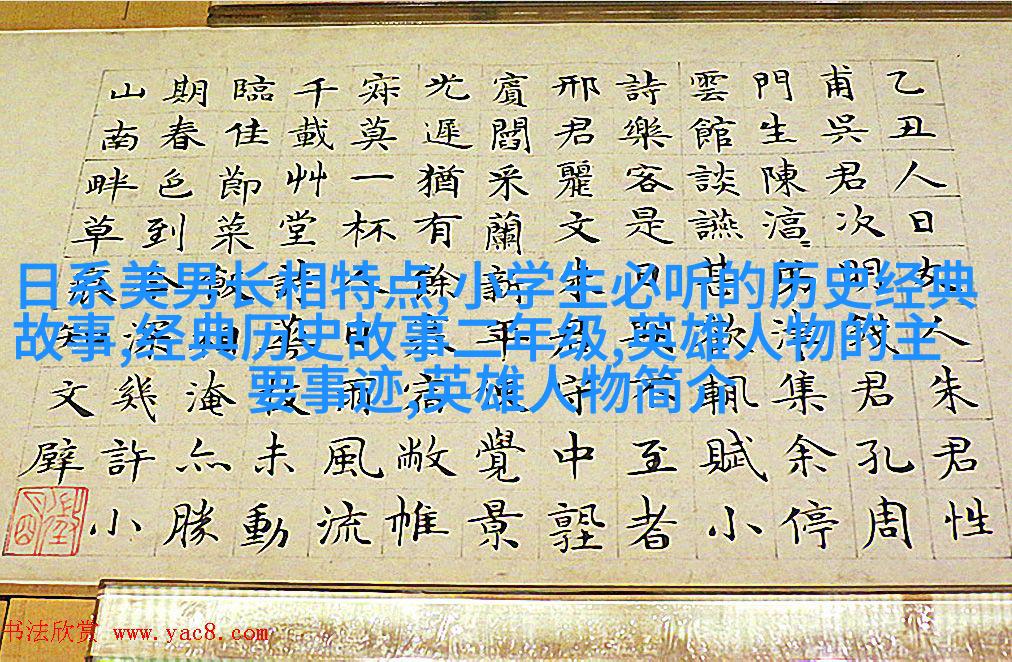 日系美男长相特点,小学生必听的历史经典
故事,经典历史故事二年级,英雄人物的主
要事迹,英雄人物简介
乙丑人日人朱君性
甫吳君次君孔周
門生陳津集余停
雲館談讌甚歡輒賦小
詩樂客是日與不至者
邢君麗文朱君守中
賓閻采蘭覺景
光遲猶有餘敝帷
寂莫一杯雨風流
千載艸堂詩未動
臨佳節菜飯淹亦勝
期春色到深幾許小
山南畔草文壁
书法欣赏 www.yac8.com